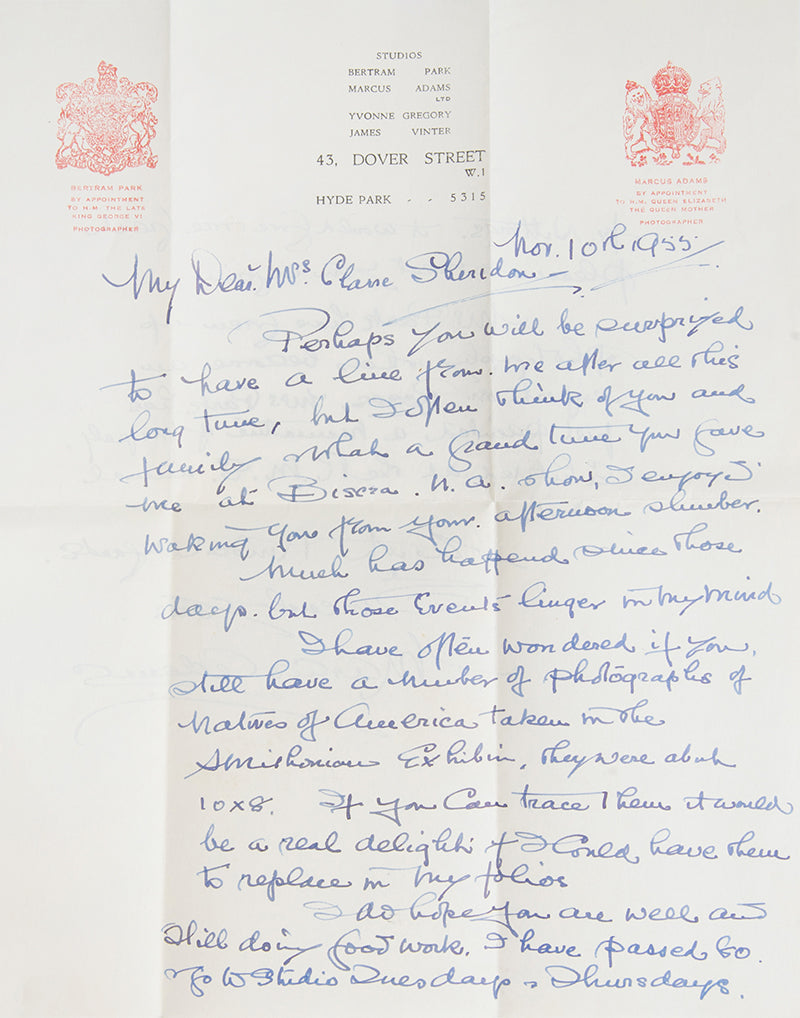 STUDIOS
BERTRAM PARK
MARCUS ADAMS
LTD
YVONNE GREGORY
JAMES VINTER
43, DOVER STREET
W.1
HYDE PARK - - 5315
BERTRAM PARK
BY APPOINTMENT
TO H.M. THE LATE
KING GEORGE VI
PHOTOGRAPHER
MARCUS ADAMS
BY APPOINTMENT
TO H.M. QUEEN ELIZABETH
THE QUEEN MOTHER
PHOTOGRAPHER
Nov. 10th 1955.
My Dear. Mrs Clare Sheridon
Perhaps you will be surprized
to have a line from. me after all this
long time, but I often think of you and
family what a grand time you gave
me at Biscra. N.A. show, I enjoyed
waking you from your. afternoon slumber.
Much has happend since those
days. but those Events linger in my mind
I have often wondered if you,
still have a number of photographs of
Natives of America taken in the
Smishonian Exhibin, they were about
10x8. If you can trace them it would
be a real delight if I could have them
to replace in my folios
I do hope you are well and
still doing good work. I have passed 80.
go to Studio Tuesdays & Thursdays.